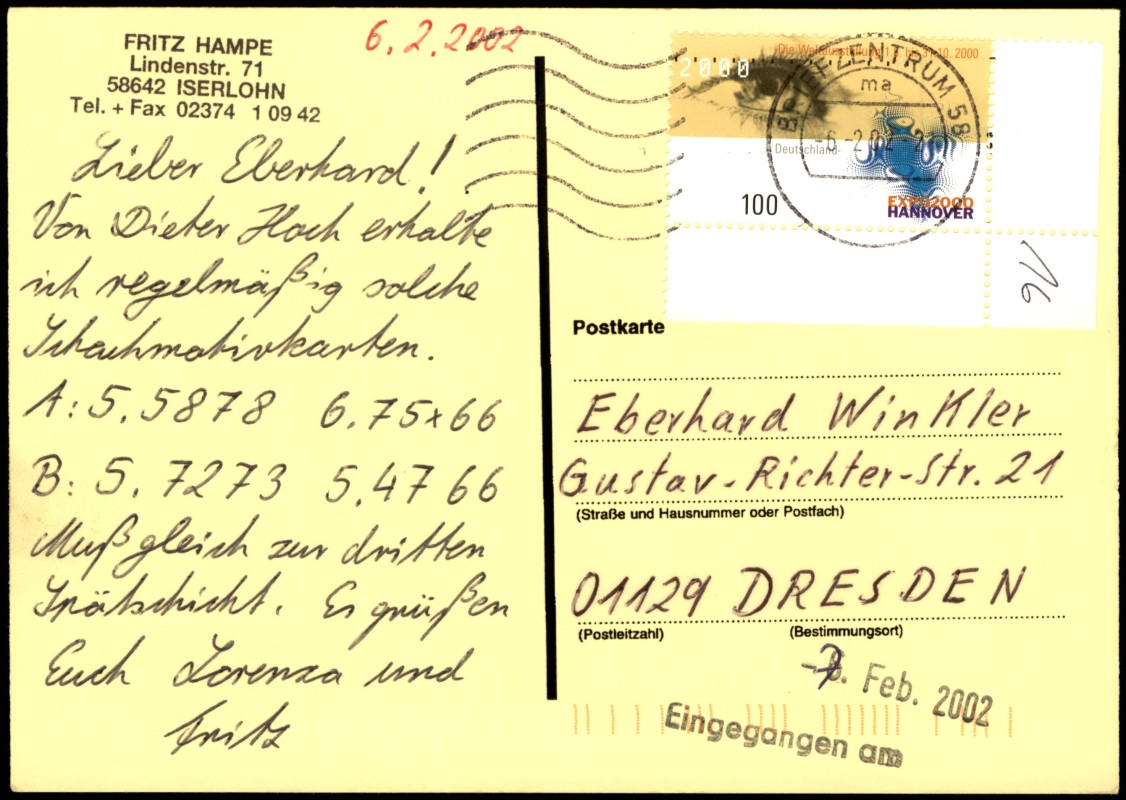 FRITZ HAMPE
Lindenstr. 71
58642 ISERLOHN
Tel. + Fax 02374 1 09 42
6.2.2002
Lieber Eberhard!
Von Dieter Hoch erhalte
ich regelmäßig solche
Schachmotivkarten.
A: 5. 5878 6. 75x66
B: 5. 7273 5. 47 66
Muß gleich zur dritten
Spätschicht. Es grüßen
Euch Lorenza und
Fritz
Die Weltausstellung 1.6. bis 31.10. 2000
2000
Deutschland
100
EXPO2000
HANNOVER
BRIEFZENTRUM 58
ma
-6.-2.02-
Postkarte
Eberhard Winkler
Gustav-Richter-Str. 21
(Straße und Hausnummer oder Postfach)
01129 DRESDEN
(Postleitzahl) (Bestimmungsort)
-7. Feb. 2002
Eingegangen am